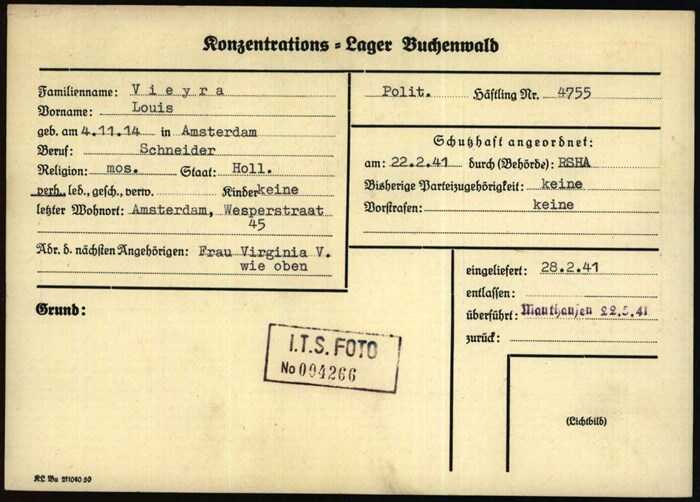 Konzentrations-Lager Buchenwald
Familienname: Vieyra
Vorname: Louis
geb. am 4.11.14 in Amsterdam
Beruf: Schneider
Religion: mos. Staat: Holl.
verh., led., gesch., verw. Kinder keine
letzter Wohnort: Amsterdam, Wesperstraat
45
Adr. d. nächsten Angehörigen: Frau Virginia V.
wie oben
Grund:
Polit. Häftling Nr. 4755
Schutzhaft angeordnet:
am: 22.2.41 durch (Behörde): RSHA
Bisherige Parteizugehörigkeit: keine
Vorstrafen: keine
eingeliefert: 28.2.41
entlassen:
überführt: Mauthausen 22.5.41
zurück:
(Lichtbild)
I.T.S. FOTO
No 004266